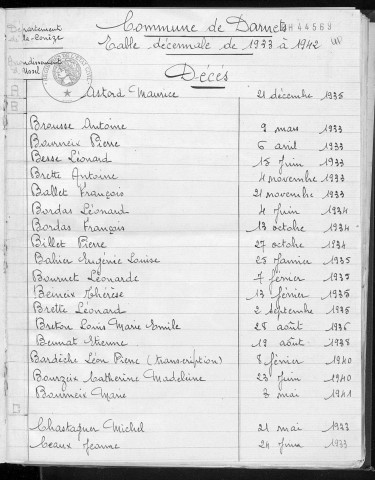 Département de la Corrèze
Commune de Darnets
H 44569
Table décennale de 1933 à 1942
Arrondissement d'Ussel
Décés
A
Astord Maurice 21 décembre 1935
B
Brousse Antoine 9 mars 1933
Bourneix Pierre 6 avril 1933
Besse Léonard 15 Juin 1933
Brette Antoine 4 novembre 1933
Ballet François 21 novembre 1933
Bordas Léonard 4 Juin 1934
Bordas François 13 octobre 1934
Billet Pierre 27 octobre 1934
Bahier Eugénie Louise 25 Janvier 1935
Bournet Léonarde 7 février 1935
Beineix Thérèse 13 février 1935
Brette Léonard 2 Septembre 1935
Breton Louis Marie Emile 28 août 1936
Bernat Etienne 19 août 1938
Bardèche Léon Pierre (transcription) 8 février 1940
Bourzeix Catherine Madeleine 23 Juin 1940
Bourneix Marie 3 mai 1941
Chastagner Michel 21 mai 1933
Ceaux Jeanne 24 Juin 1933